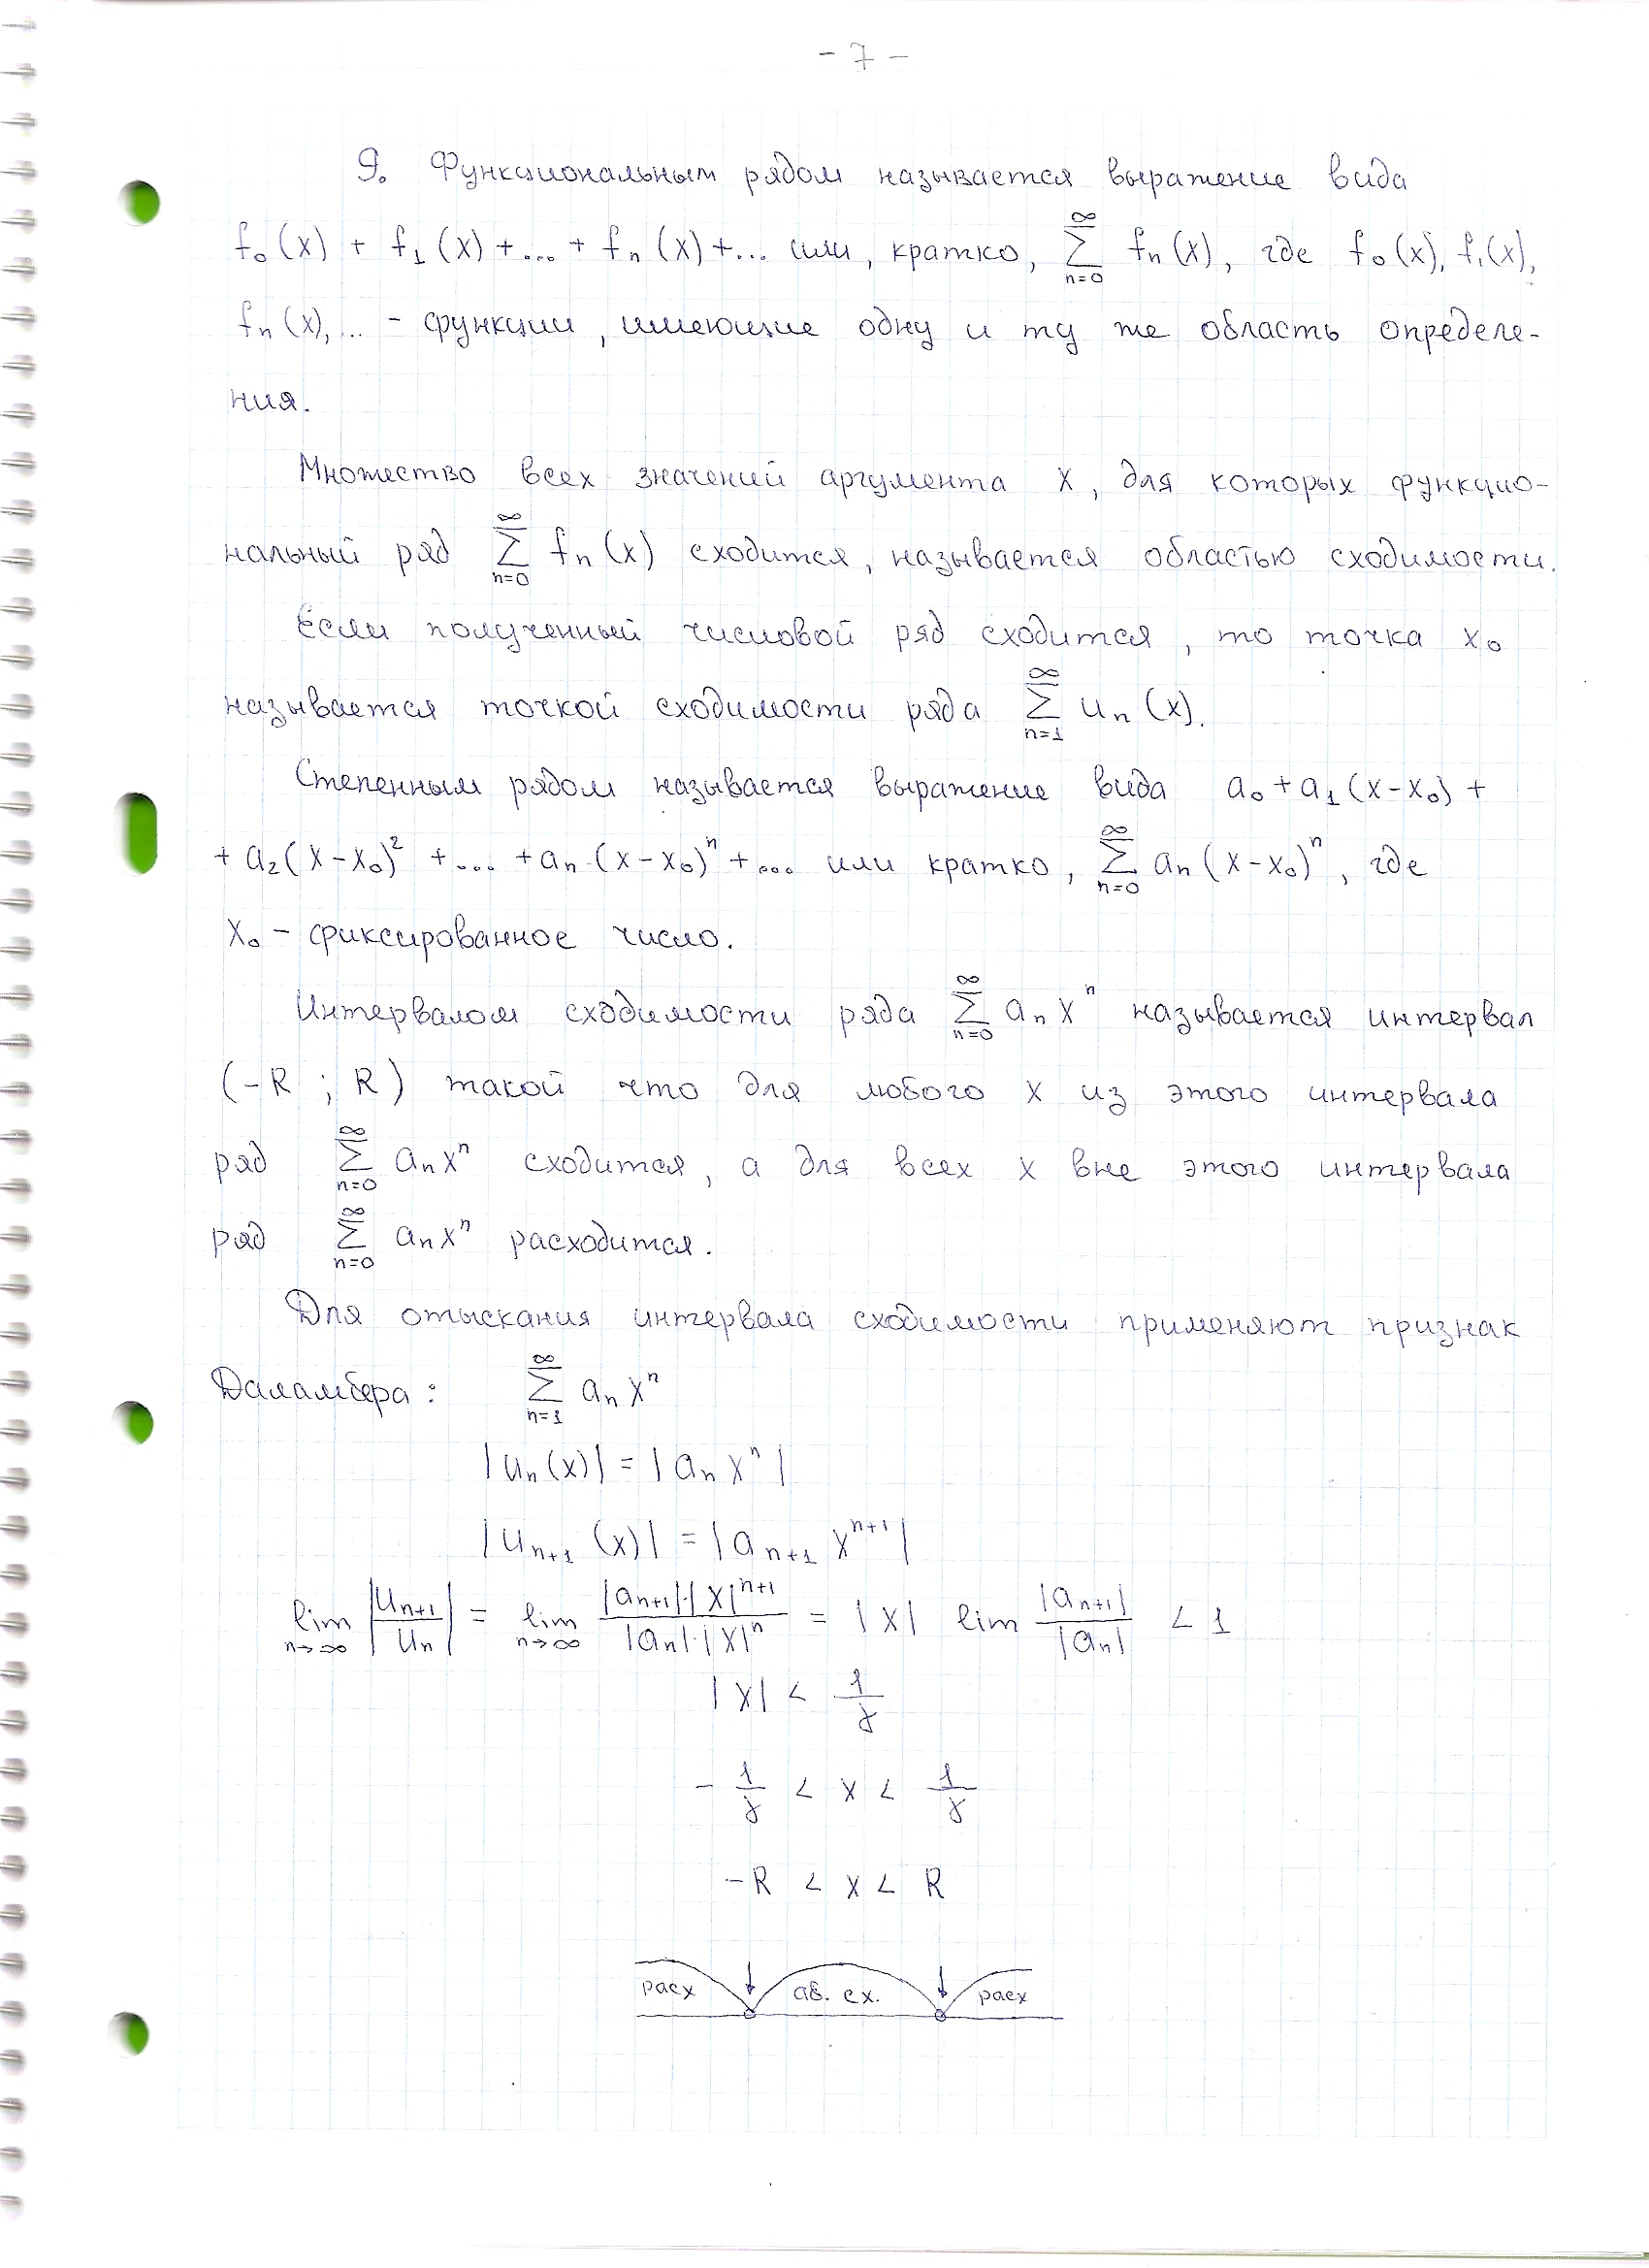 - 7 -
9. Функциональным рядом называется выражение вида
f₀(x) + f₁(x) +...+ fₙ(x) +... или, кратко, ∑ₙ₌₀^∞ fₙ(x), где f₀(x), f₁(x),
fₙ(x),... - функции, имеющие одну и ту же область определе-
ния.
Множество всех значений аргумента x, для которых функцио-
нальный ряд ∑ₙ₌₀^∞ fₙ(x) сходится, называется областью сходимости.
Если полученный числовой ряд сходится, то точка x₀
называется точкой сходимости ряда ∑ₙ₌₁^∞ uₙ(x).
Степенным рядом называется выражение вида a₀ + a₁(x-x₀) +
+ a₂(x-x₀)² +... + aₙ·(x-x₀)ⁿ +... или кратко, ∑ₙ₌₀^∞ aₙ(x-x₀)ⁿ, где
x₀ - фиксированное число.
Интервалом сходимости ряда ∑ₙ₌₀^∞ aₙxⁿ называется интервал
(-R ; R) такой что для любого x из этого интервала
ряд ∑ₙ₌₀^∞ aₙxⁿ сходится, а для всех x вне этого интервала
ряд ∑ₙ₌₀^∞ aₙxⁿ расходится.
Для отыскания интервала сходимости применяют признак
Даламбера: ∑ₙ₌₁^∞ aₙxⁿ
|uₙ(x)| = |aₙxⁿ|
|uₙ₊₁(x)| = |aₙ₊₁xⁿ⁺¹|
lim n→∞ |uₙ₊₁/uₙ| = lim n→∞ |aₙ₊₁|·|x|ⁿ⁺¹/|aₙ|·|x|ⁿ = |x| lim |aₙ₊₁|/|aₙ| < 1
|x| < 1/γ
- 1/γ < x < 1/γ
-R < x < R
расх аб. сх. расх